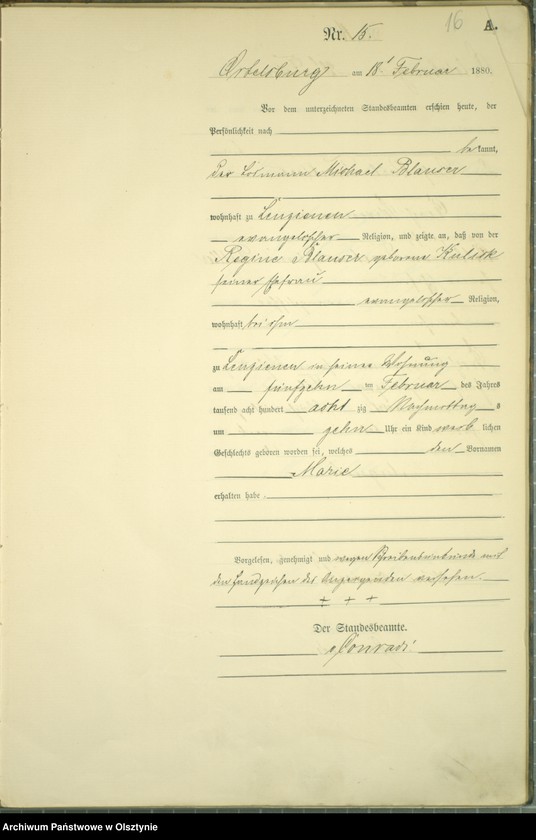 16 A.
Nr. 15.
Ortelsburg am 18 Februar 1880.
Vor dem unterzeichneten Standesbeamten erschien heute, der
Persönlichkeit nach
be kannt,
der Michael
wohnhaft zu Lenzienen
evangelischer Religion, und zeigte an, daß von der
Regine geborene
seiner Ehefrau
evangelischer Religion,
wohnhaft bei ihm
zu Lenzienen in seiner Wohnung
am fünfzehn ten Februar des Jahres
tausend acht hundert acht zig Nachmittag s
um zehn Uhr ein Kind weib lichen
Geschlechts geboren worden sei, welches den Vornamen
Marie
erhalten habe.
Vorgelesen, genehmigt und wegen Schreibensunkunde mit
den Handzeichen des Anzeigenden versehen.
+ + +
Der Standesbeamte.
Conradi
Archiwum Państwowe w Olsztynie